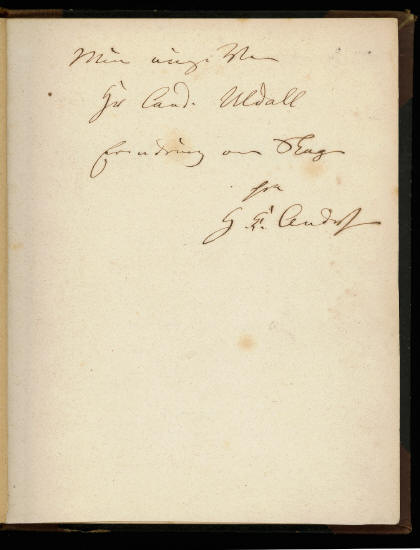 Min unge Ven
Hr Cand. Uldall
Erindring om Skagen
fra
H C. Andersen